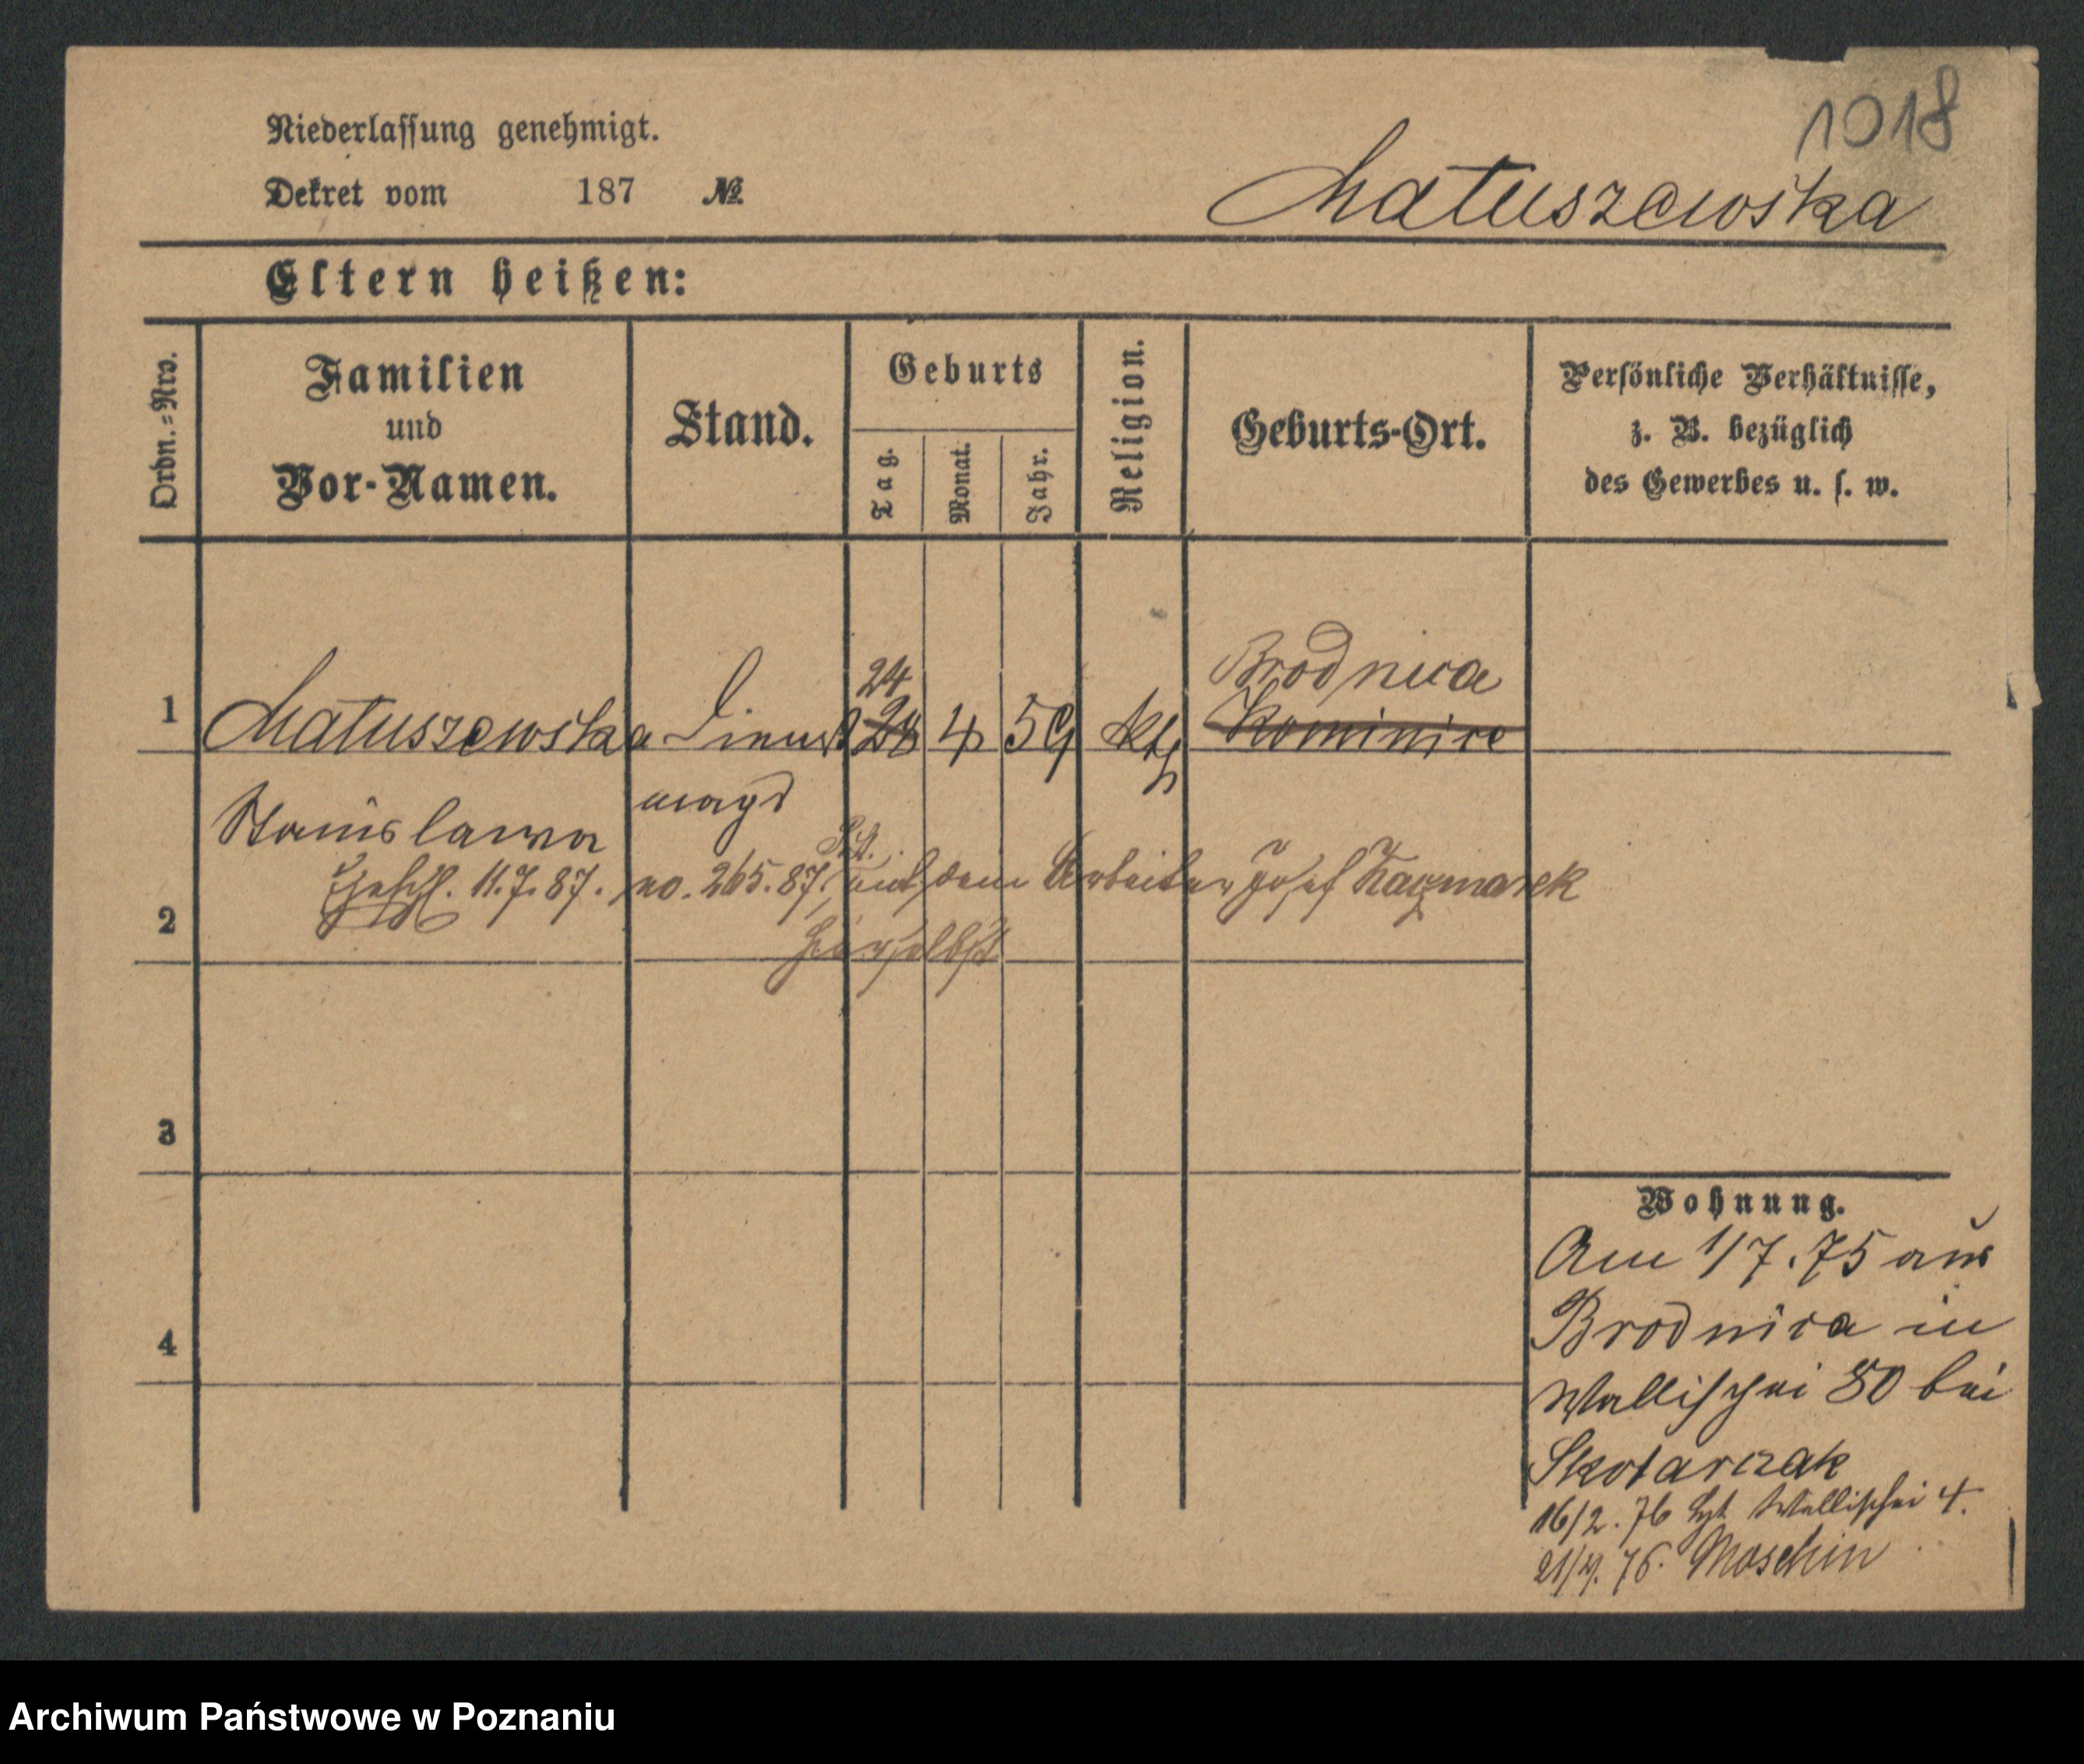 1018
Niederlassung genehmigt.
Dekret vom 187 №
Matuszewska
Eltern heißen:
Ordn.-Nro.
Familien
und
Vor-Namen.
Stand.
Geburts
Tag.
Monat.
Jahr.
Religion.
Geburts-Ort.
Persönliche Verhältnisse,
z. B. bezüglich
des Gewerbes u. s. w.
24 Brodnica
1 Matuszewska Dienst 28 4 59 kth
magd
Stanislawa
Eheschl. 11.7.87. no. 265.87. mit dem Arbeiter Josef Kaczmarek
2
hierselbst
3
4
Wohnung.
Am 1/7.75 aus
Brodnica in
Wallischei 80 bei
Skotarczak
16/2.76 Wallischei 4.
76. Moschin
Archiwum Państwowe w Poznaniu